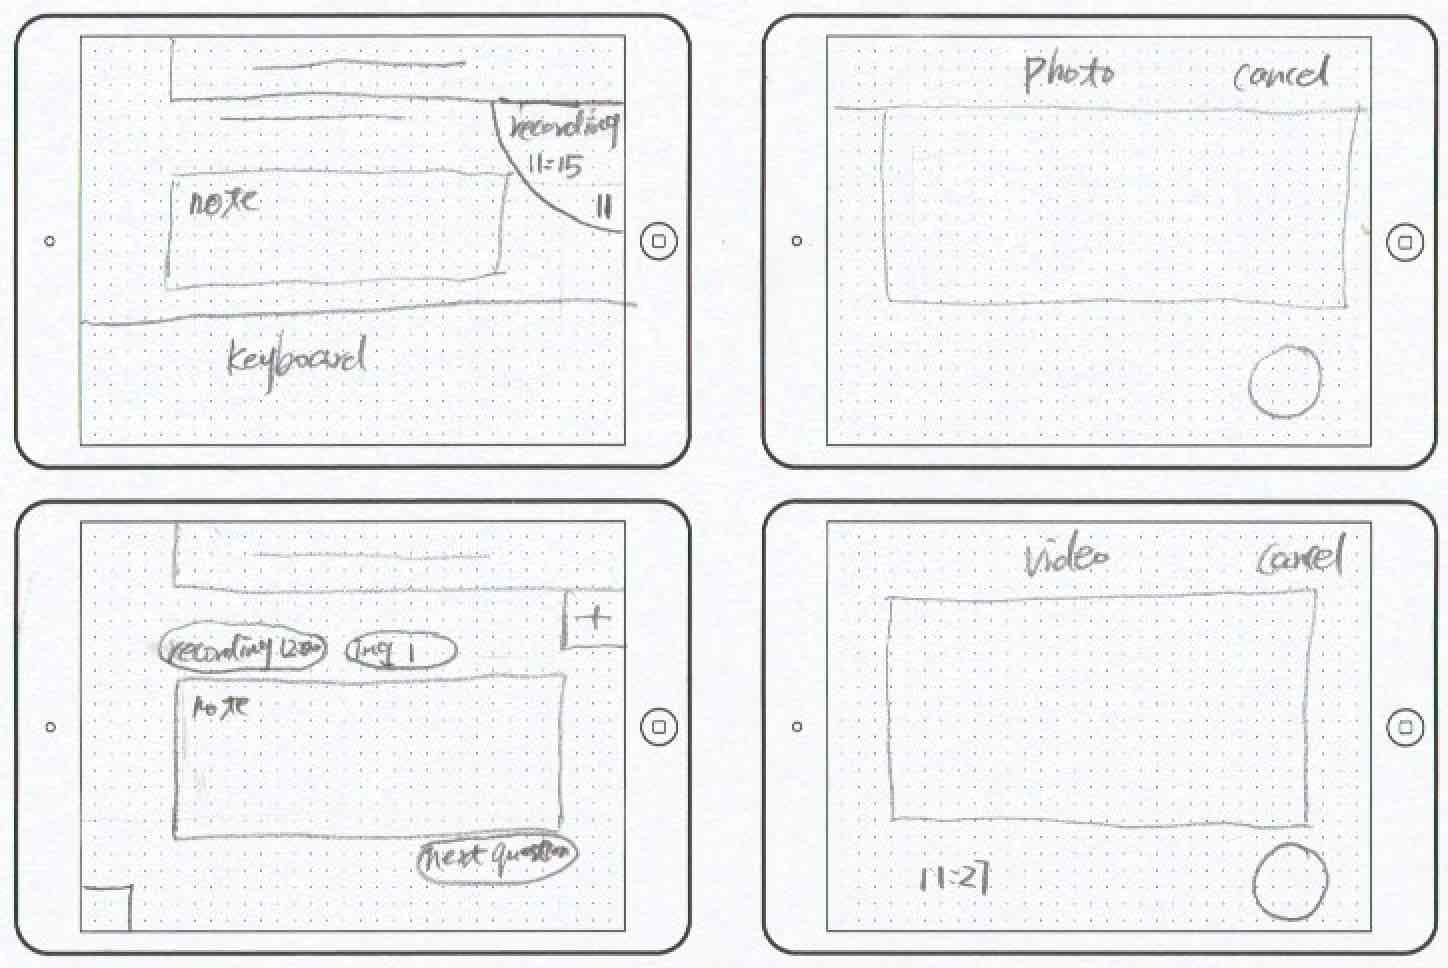 recording
11:15
note
keyboard
Photo cancel
img 1
note
next question
Video cancel
11:27